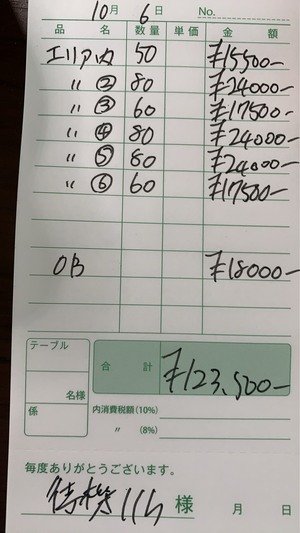 10月 6日 No.
品名 数量 単価 金額
エリア内 50 ¥15500-
〃 ② 80 ¥24000-
〃 ③ 60 ¥17500-
〃 ④ 80 ¥24000-
〃 ⑤ 80 ¥24000-
〃 ⑥ 60 ¥17500-
OB ¥18000-
テーブル
名様
係
合計 ¥123,500-
内消費税額(10%)
〃 (8%)
毎度ありがとうございます。
待機 様 月 日